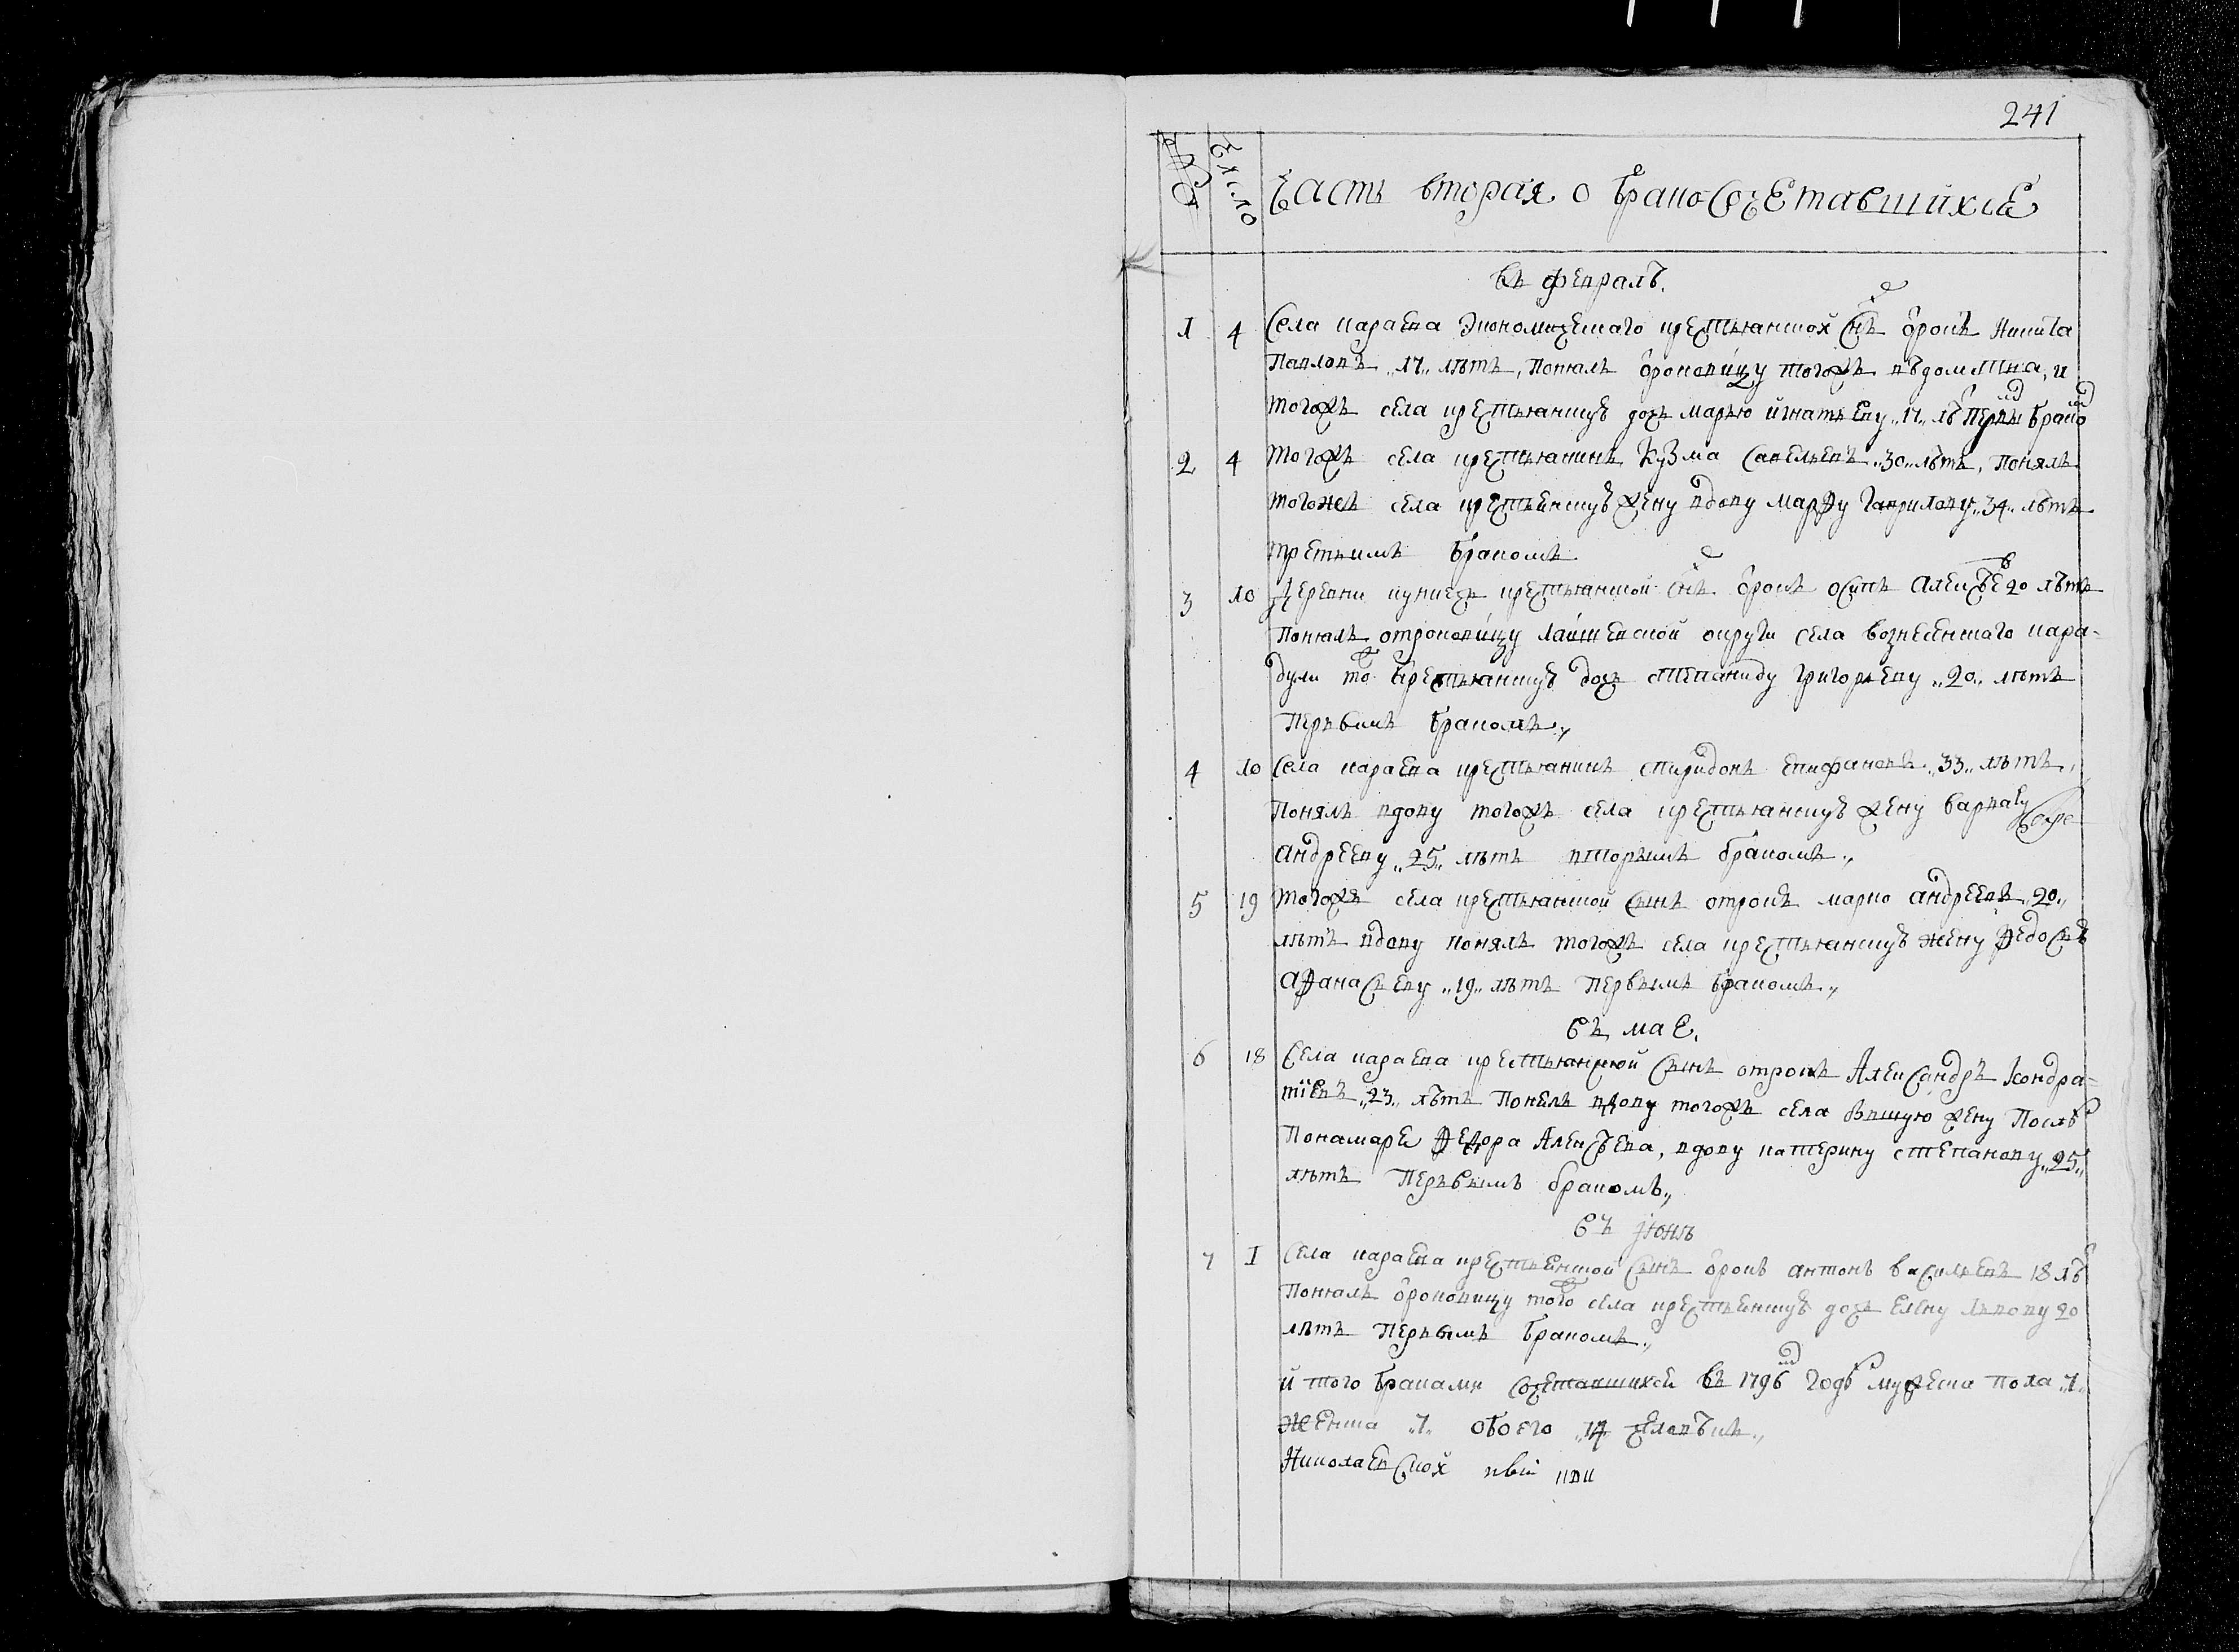 241
№
Число
Часть вторая о бракосочетавшихсе
въ февралѣ.
1 4 Села караева экономическаго крестьянской снъ ѻ҆трокъ Никита
Павловъ „17„ лѣтъ, понялъ ѻ҆троковицу тогожъ вѣдомства, и
тогожъ села крестьянскую дочь марью игнатьеву „17„ лѣ первы бракомъ
2 4 тогожъ села крестьянинъ Кузма Савельевъ „30„ лѣтъ, понялъ
тогожъ села крестьенскую жену вдову марфу гаврилову „34„ лѣтъ
третьимъ бракомъ
3 10 Деревни крестьянской снъ ѻ҆трокъ осипъ алексѣевъ 20 лѣтъ
понялъ отроковицу лаишевской округи села вознесенскаго кара-
дули то крестьянскую дочь степаниду григорьеву „20„ лѣтъ
первымъ бракомъ„
4 10 Села караева крестьянинъ спиридонъ епифановъ „33„ лѣтъ,
понялъ вдову тогожъ села крестьянскую жену варвару
андрееву „25„ лѣтъ вторымъ бракомъ„
5 19 тогожъ села крестьянской сынъ отрокъ марко андреевъ „20„
лѣтъ вдову понялъ тогожъ села крестьянскую жену федосью
афанасьеву „19„ лѣтъ первымъ бракомъ„
Въ мае.
6 18 Села караева крестьянской сынъ отрокъ Александръ кондра-
тіевъ „23„ лѣтъ понелъ вдову тогожъ села бывшую жену послѣ
пономаре федора Алексѣева, вдову катерину степанову „25„
лѣтъ первымъ бракомъ„
Въ іюнѣ
7 1 Села караева крестьенской сынъ ѻ҆трокъ антонъ васильевъ 18 лѣ
понялъ ѻ҆троковицу того села крестьенскую дочь елену львову 20
лѣтъ первымъ бракомъ„
и того браками сочетавшихсе въ 1796 годѣ мужеска пола „7„
женска „7„ обоего „14„ человѣкъ„
Николаевской